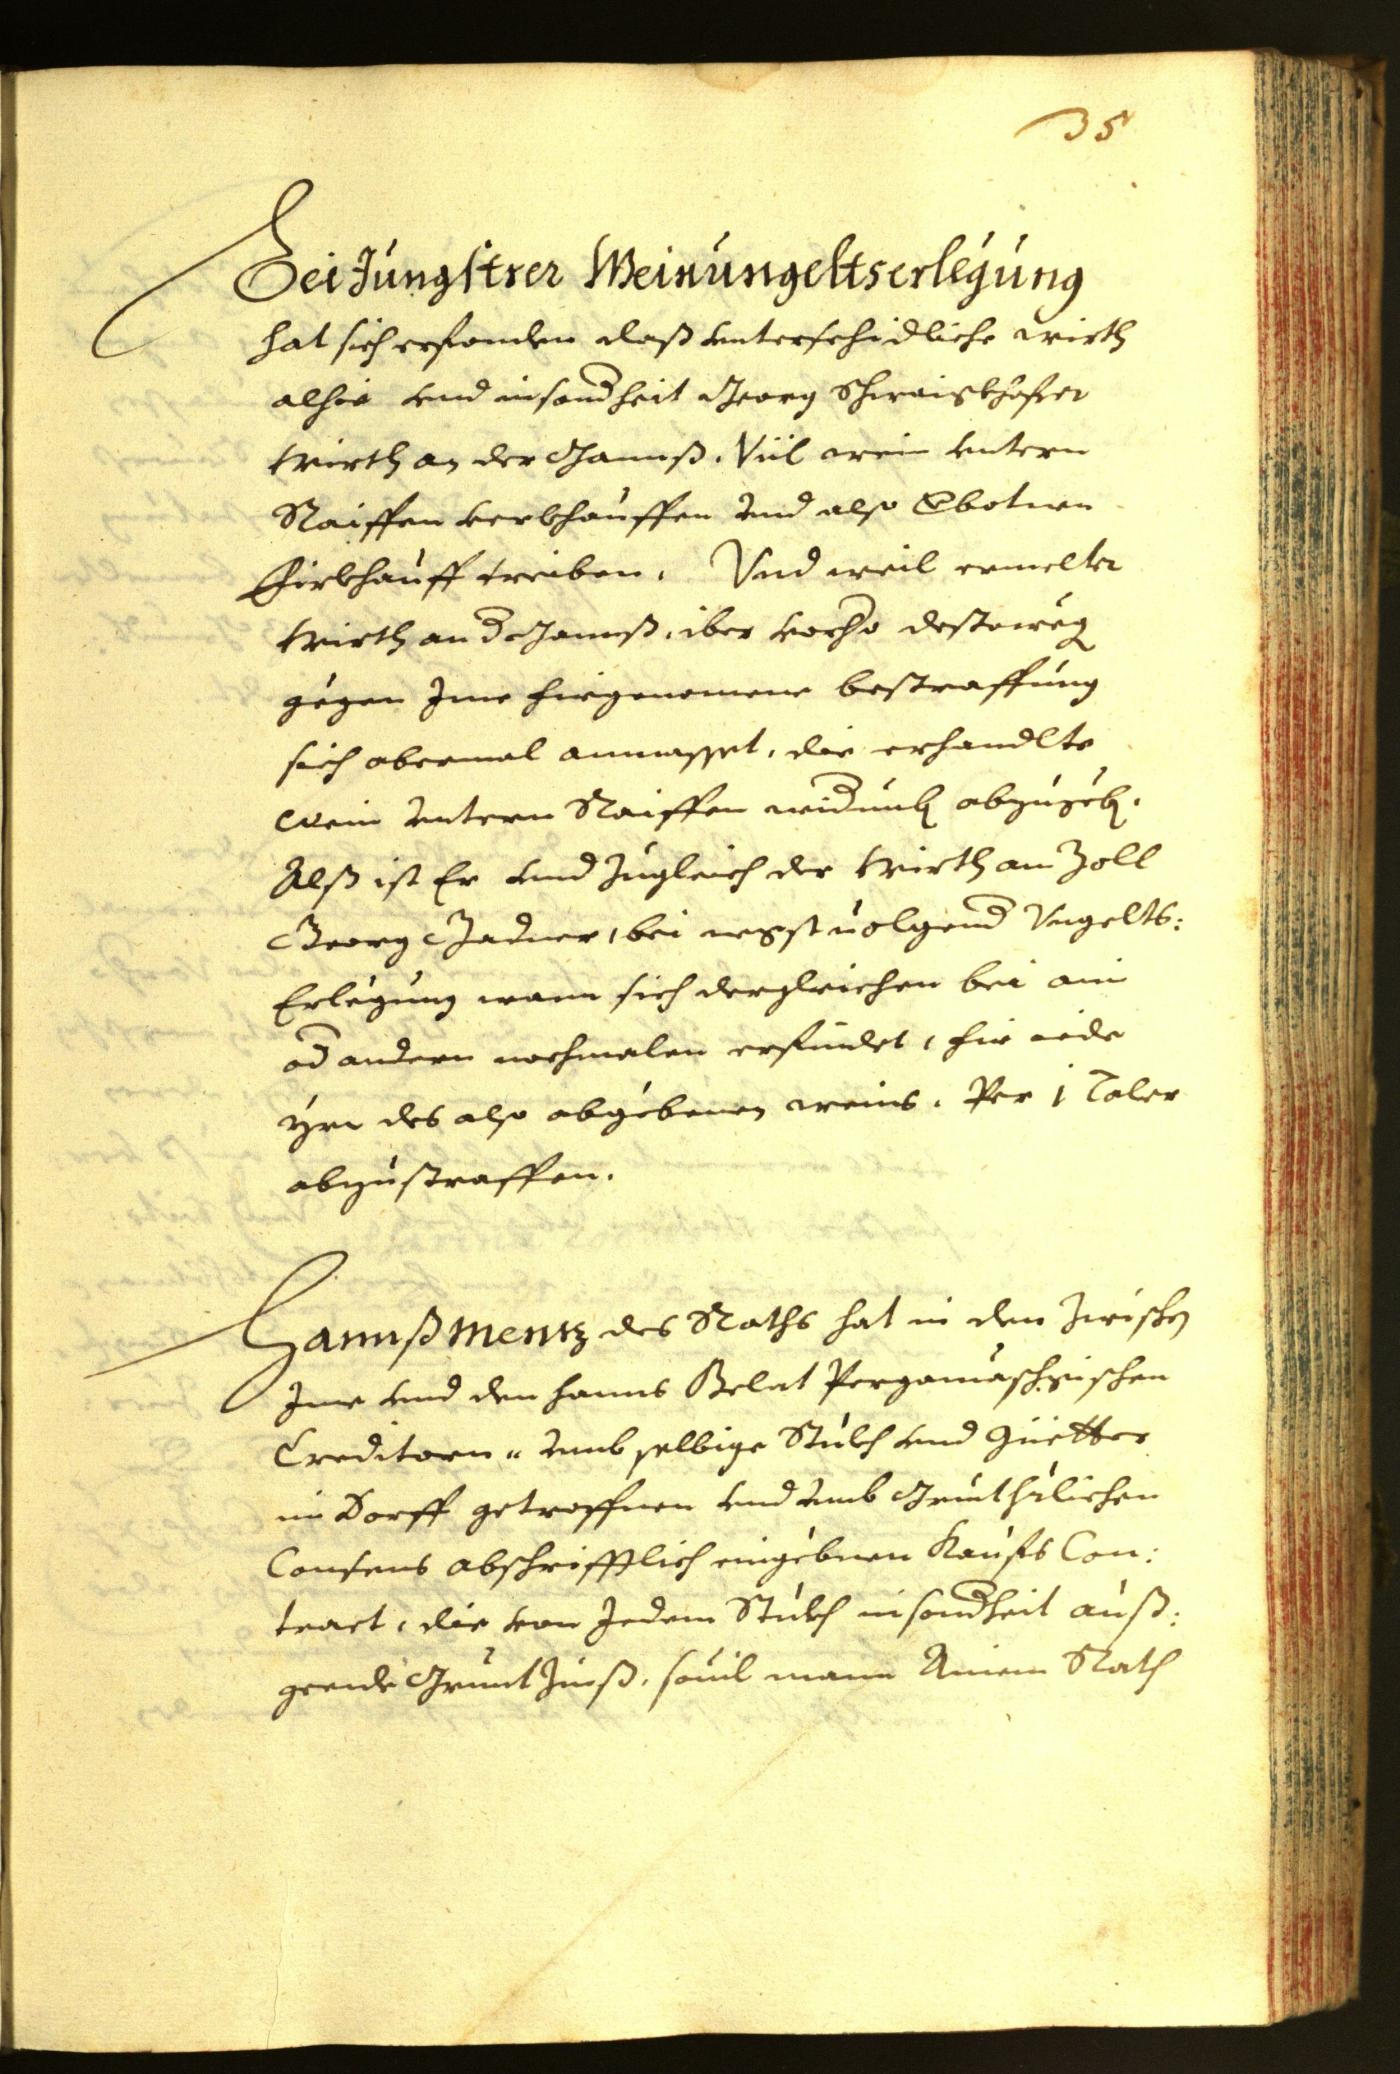 35
Bei Jungstrer Weinungeltserlegung
hat sich erfonden daß unterschidliche wirth
alhie und insonderheit Georg Schwaigkhofer
Wirth an der Gannß. Vil wein untern
Raiffen verkhauffen und also verbotnen
Firkhauff treiben. Und weil ermelter
Wirth an der Gannß, iber vorhero desteweg
gegen Ime firgenomene bestraffung
sich abermal anmasset, die erhandlte
Wein untern Raiffen widrumb abzugeb.
Alß ist Er und zugleich der Wirth am Zoll
Georg Gadner, bei negst volgend Ungelts:
Erlegung wann sich dergleichen bei ain
oder andern nochmalen erfindet, fir iede
yrn des also abgebenen weins. Per 1 Taler
abzustraffen.
Hannß Mentz des Raths hat in den zwischen
Ime und den Hanns Belat Pergamaschgischen
Creditorn umb selbige Stukh und Güetter
im Dorff getroffnen und umb Gruntherlichen
Consens abschrifftlich eingebnen Kaufs Con:
tract, die von Jedem Stukh insonderheit auß:
geende Grunt Zinß, sovil mann Ainem Rath